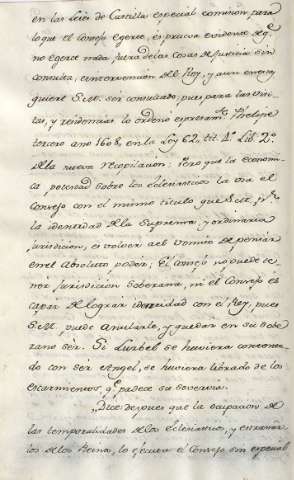 en las Leies de Castilla especial comision, para
lo que el Consejo egerce, es prueva evidente de q.e
no egerce nada fuera de las cosas de Justicia sin
consulta, e intervencion del Rey, y aun en esta
quiere S.M. ser consultado, pues para las
y residencias lo ordenó espresam.te Phelipe
tercero año 1608, en la Ley 62, tit. 4.º Lib. 2.º
de la nueva recopilacion: Pero que la economi-
ca potestad sobre los eclesiasticos la usa el
Consejo con el mismo titulo que S.M., p.r
la identidad de la Suprema, y ordinaria
jurisdicion, es volver al vomito de pensar
en el Absoluto poder; El Consejo no puede te-
ner jurisdicion Soberana, ni el Consejo es
capaz de lograr identidad con el Rey, pues
S.M. puede anularle, y quedar en su sobe-
rano ser. Si Luzbel se huviera contenta-
do con ser Angel, se huviera librado de los
escarmientos, q.e padece su sovervia.
Dice despues que la ocupacion de
las temporalidades de los Eclesiasticos, y estrañar-
los de los Reinos, lo egecuta el Consejo sin especial